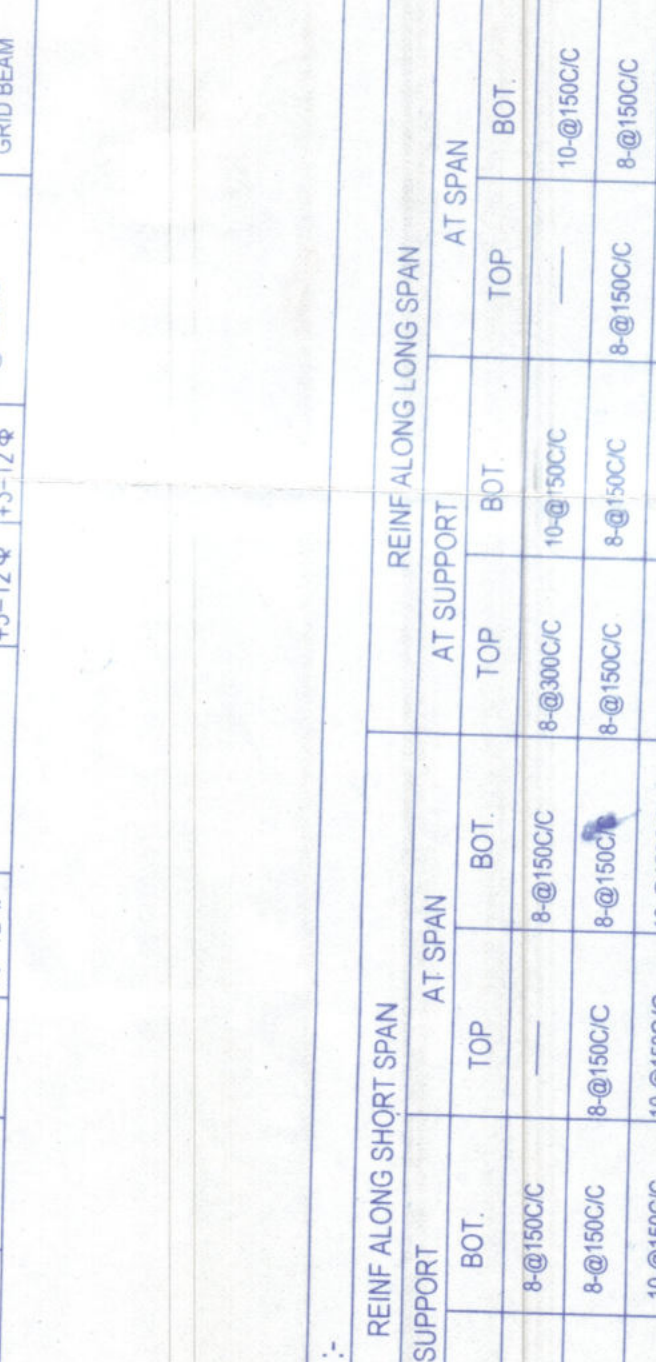 GRID BEAM
+3-12Φ +3-12Φ
:-
REINF ALONG SHORT SPAN REINF ALONG LONG SPAN
SUPPORT AT SPAN AT SUPPORT AT SPAN
BOT. TOP BOT. TOP BOT. TOP BOT.
8-@150C/C — 8-@150C/C 8-@300C/C 10-@150C/C — 10-@150C/C
8-@150C/C 8-@150C/C 8-@150C/C 8-@150C/C 8-@150C/C 8-@150C/C 8-@150C/C
10-@150C/C 10-@150C/C